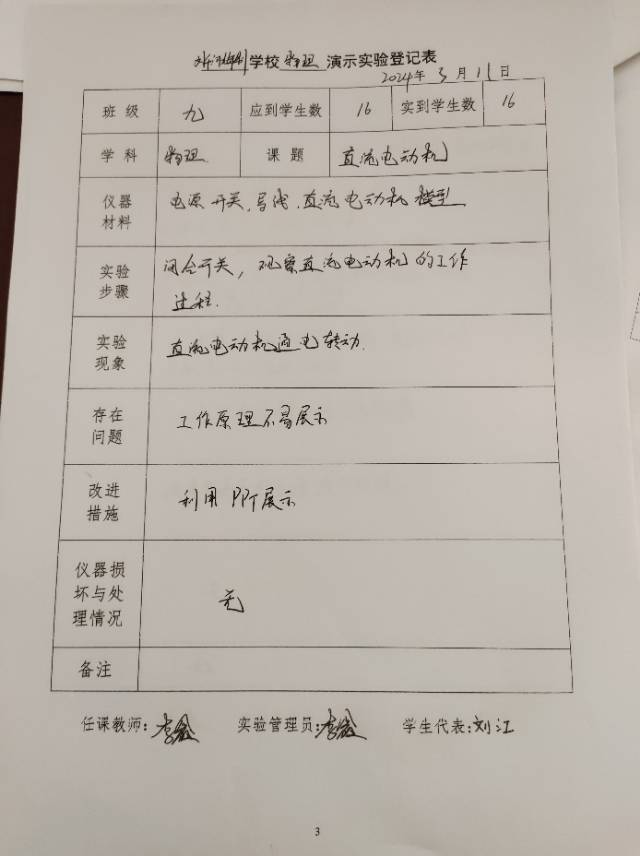 学校 物理 演示实验登记表
2024年 3月 11日
班级 九 应到学生数 16 实到学生数 16
学科 物理 课题 直流电动机
仪器材料 电源 开关、导线、直流电动机 模型
实验步骤 闭合开关，观察直流电动机的工作
过程.
实验现象 直流电动机通电转动.
存在问题 工作原理不易展示
改进措施 利用 PPT展示
仪器损坏与处理情况 无
备注
任课教师: 实验管理员: 学生代表:刘江
3